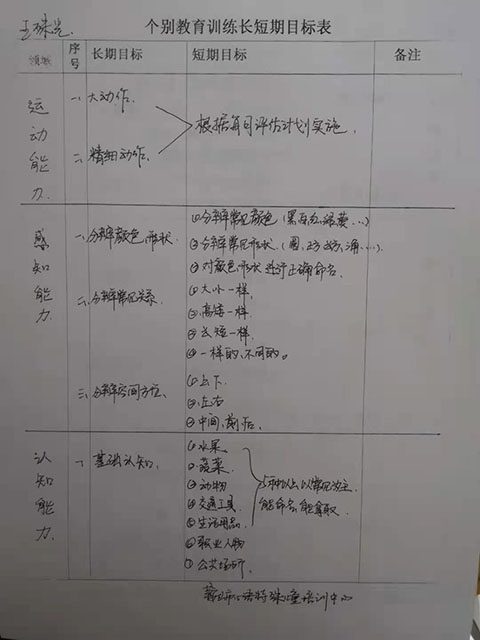 个别教育训练长短期目标表
领域 序号 长期目标 短期目标 备注
运动能力
一、大动作.
二、精细动作.
根据每月评估计划实施.
感知能力
一、分辨颜色、形状.
①分辨常见颜色(黑白红绿黄...)
②分辨常见形状(圆、
③对颜色形状进行正确命名.
二、分辨常见关系.
①大小一样.
②高矮一样.
③长短一样.
④一样的、不同的。
三、分辨空间方位.
①上下
②左右
③中间、前后.
认知能力
一、基础认知.
①水果
②蔬菜.
③动物
④交通工具.
⑤生活用品.
⑥职业人物
⑦公共场所.
以常见为主
能命名能拿取.
特殊儿童培训中心